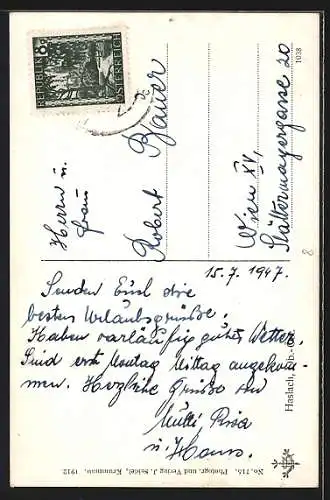 REPUBLIK
ÖSTERREICH
8
Herrn u.
Frau
Robert Bauer
Wien XV,
Stättermayergasse 20
1038
15.7.1947.
Senden Euch die
besten Urlaubsgrüße.
Haben vorläufig gutes Wetter.
Sind erst Montag Mittag angekom-
men. Herzliche Grüße von
Mutti, Rosa
u. Hans.
Haslach, Ob.-
No. 715. Photogr. und Verlag J. Seidel, Krummau. 1912
8